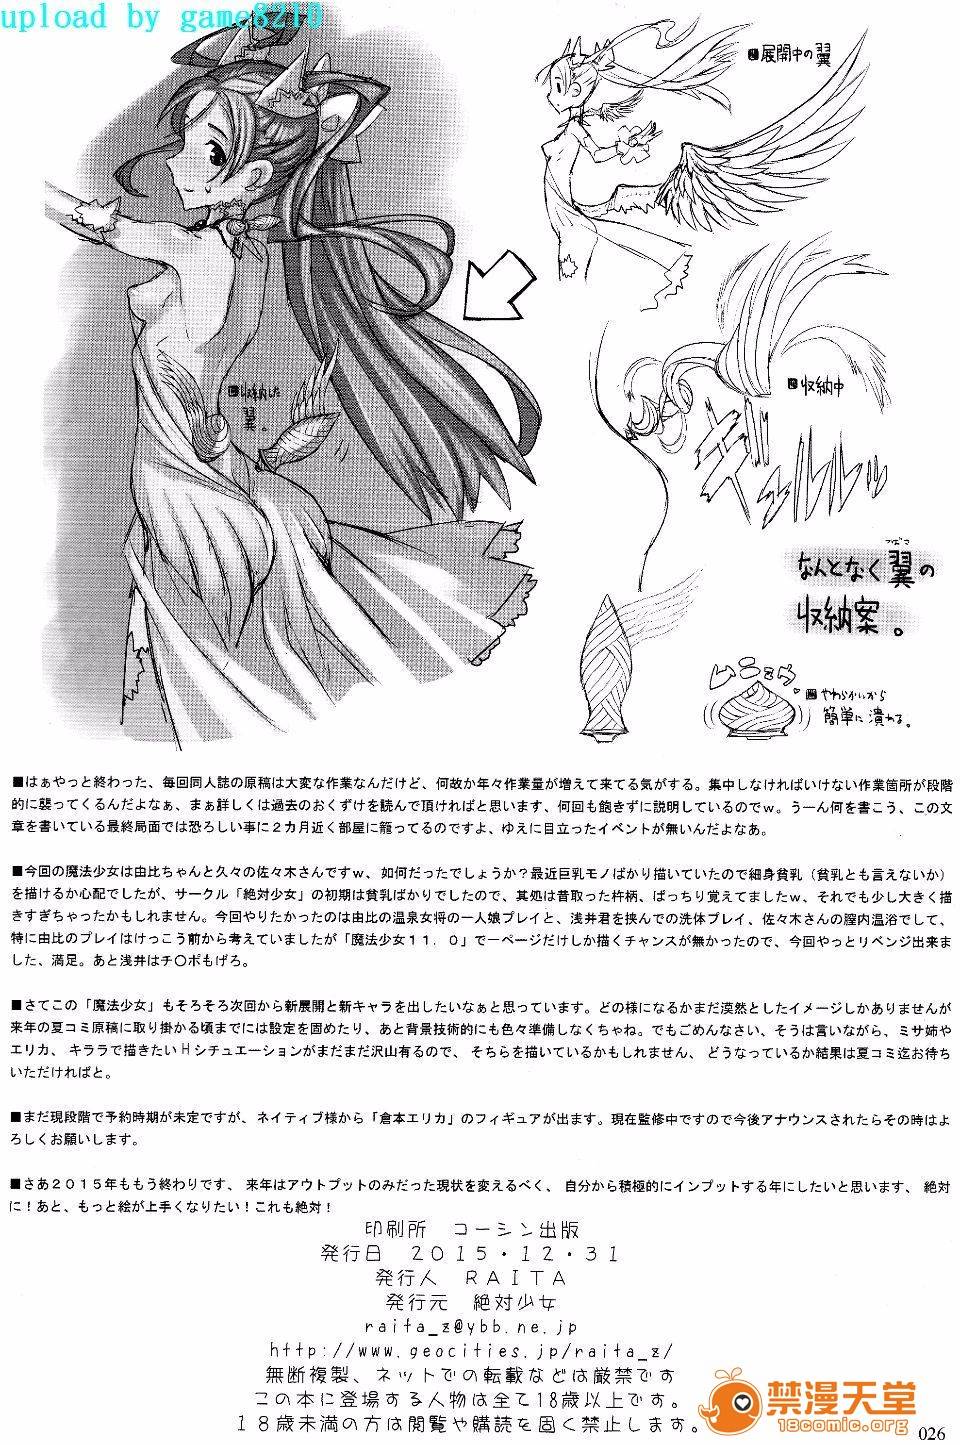 upload by game8210
展開中の翼
収納した
翼。
収納中
ギュルルルッ
つばさ
なんとなく翼の
収納案。
ムニュウ
やわらかいから
簡単に潰れる。
■はぁやっと終わった、毎回同人誌の原稿は大変な作業なんだけど、何故か年々作業量が増えて来てる気がする。集中しなければいけない作業箇所が段階
的に襲ってくるんだよなぁ、まぁ詳しくは過去のおくずけを読んで頂ければと思います、何回も飽きずに説明しているのでw。うーん何を書こう、この文
章を書いている最終局面では恐ろしい事に2カ月近く部屋に籠ってるのですよ、ゆえに目立ったイベントが無いんだよなあ。
■今回の魔法少女は由比ちゃんと久々の佐々木さんですw、如何だったでしょうか?最近巨乳モノばかり描いていたので細身貧乳(貧乳とも言えないか)
を描けるか心配でしたが、サークル「絶対少女」の初期は貧乳ばかりでしたので、其処は昔取った杵柄、ばっちり覚えてましたw、それでも少し大きく描
きすぎちゃったかもしれません。今回やりたかったのは由比の温泉女将の一人娘プレイと、浅井君を挟んでの洗体プレイ、佐々木さんの膣内温浴でして、
特に由比のプレイはけっこう前から考えていましたが「魔法少女11.0」で一ページだけしか描くチャンスが無かったので、今回やっとリベンジ出来ま
した、満足。あと浅井はチ〇ポもげろ。
■さてこの「魔法少女」もそろそろ次回から新展開と新キャラを出したいなぁと思っています。どの様になるかまだ漠然としたイメージしかありませんが
来年の夏コミ原稿に取り掛かる頃までには設定を固めたり、あと背景技術的にも色々準備しなくちゃね。でもごめんなさい、そうは言いながら、ミサ姉や
エリカ、キララで描きたいHシチュエーションがまだまだ沢山有るので、そちらを描いているかもしれません、どうなっているか結果は夏コミ迄お待ち
いただければと。
■まだ現段階で予約時期が未定ですが、ネイティブ様から「倉本エリカ」のフィギュアが出ます。現在監修中ですので今後アナウンスされたらその時はよ
ろしくお願いします。
■さあ2015年ももう終わりです、来年はアウトプットのみだった現状を変えるべく、自分から積極的にインプットする年にしたいと思います、絶対
に!あと、もっと絵が上手くなりたい!これも絶対!
印刷所 コーシン出版
発行日 2015・12・31
発行人 RAITA
発行元 絶対少女
raita_z@ybb.ne.jp
http://www.geocities.jp/raita_z/
無断複製、ネットでの転載などは厳禁です
この本に登場する人物は全て18歳以上です。
18歳未満の方は閲覧や購読を固く禁止します。
禁漫天堂
18comic.org
026